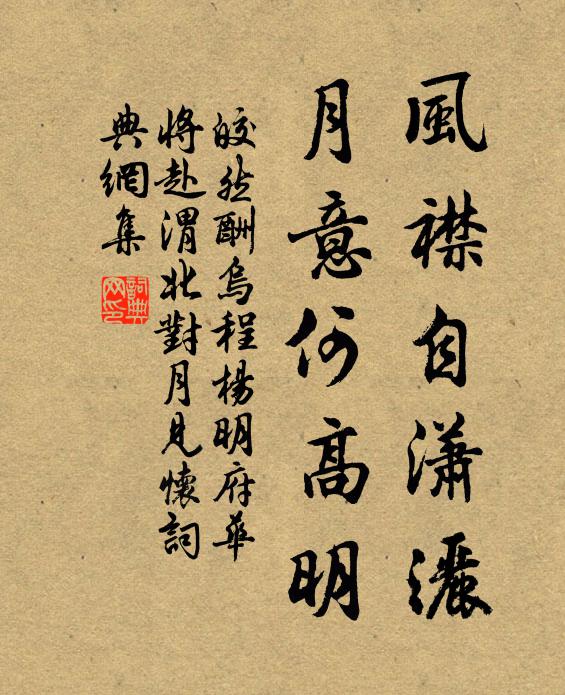 風襟自瀟灑
月意何高明
皎然酬烏程楊明府華
將赴渭北對月見懷詞
典網集
詞典
网印